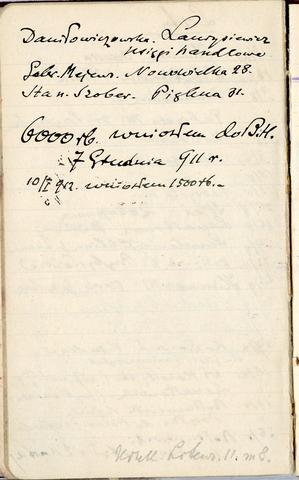 Daniłowiczowska. Lawrysiewicz
Księgi handlowe
Gebr. Meyer. Nowowielka 28.
Stan. Szober. Piękna 31.
6000 rb. wniosłem do B.H.
7 Grudnia 911 r.
10/I 912. wniosłem 1500 rb. –
11. m 8.